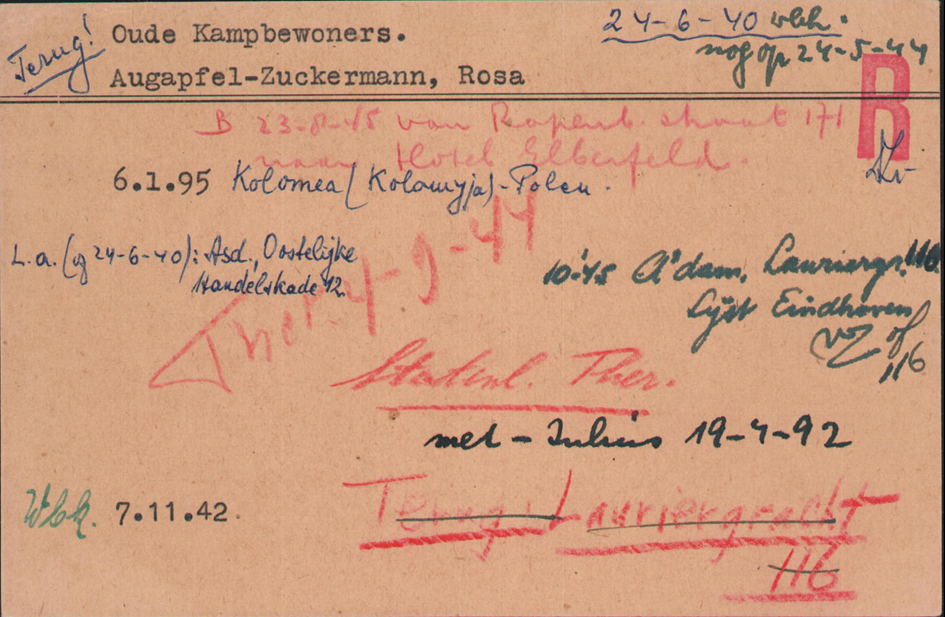 Terug!
Oude Kampbewoners.
24-6-40 wbk.
nog op 24-5-44
Augapfel-Zuckermann, Rosa
R
B 23-8-45 van Rapenb. straat 171
naar Hotel Elberfeld.
6.1.95 Kolomea (Kolomyja)-Polen.
L.a. (op 24-6-40): Asd., Oostelijke
Handelskade 12.
Ther. 4-9-44
10-45 A'dam, Lauriergr. 116
Lijst Eindhoven
of
116
Statenl. Ther.
met - Julius 19-4-92
Wbk. 7.11.42.
Terug: Lauriergracht
116